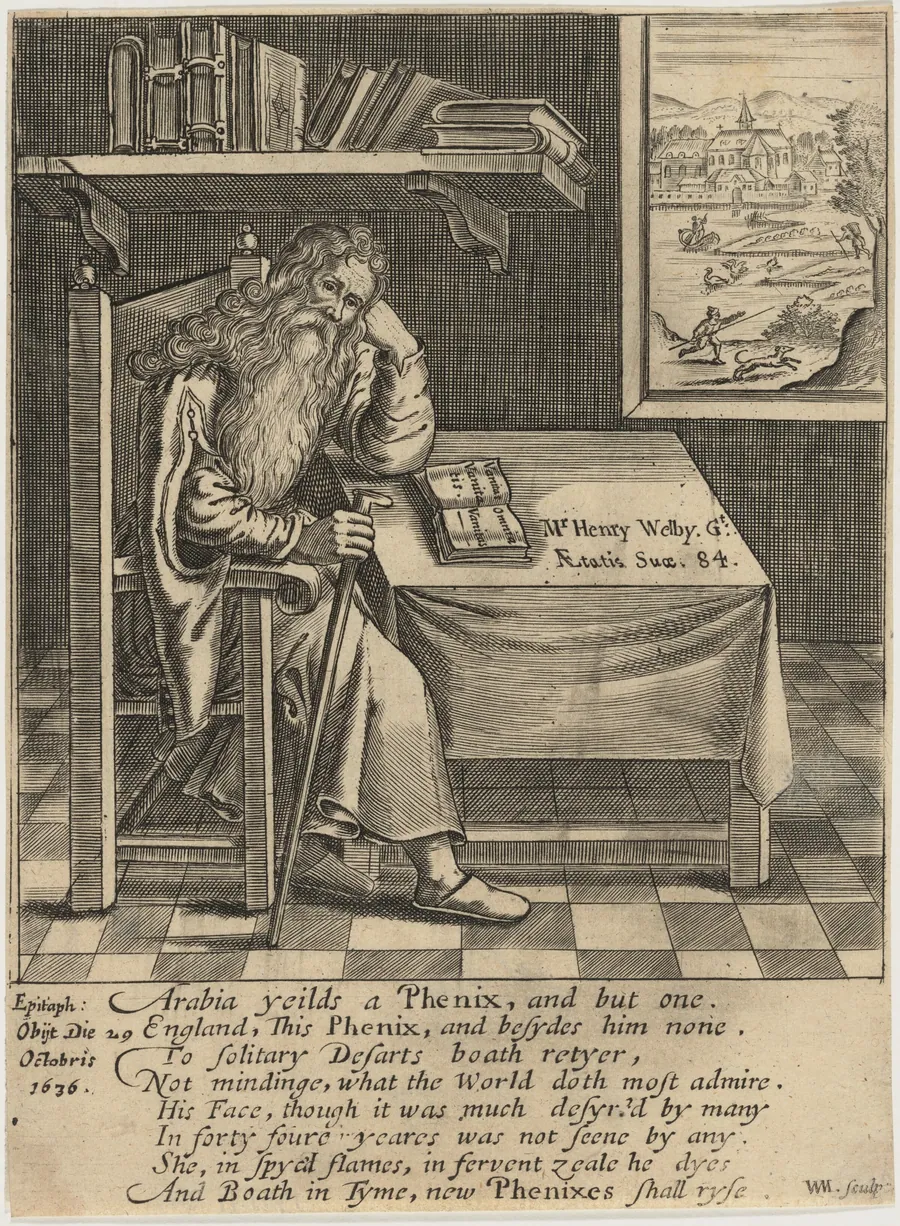 Vanitas
Vanita
tis.
Omnia
Vanitas
Mr Henry Welby. Gt.
Ætatis Suæ. 84.
Epitaph:
Obijt Die 29
Octobris
1636.
Arabia yeilds a Phenix, and but one.
England, This Phenix, and besydes him none.
To solitary Desarts boath retyer,
Not mindinge, what the World doth most admire.
His Face, though it was much desyr'd by many
In forty foure yeares was not seene by any.
She, in spyc'd flames, in fervent zeale he dyes
And Boath in Tyme, new Phenixes shall ryse.
WM. sculp: